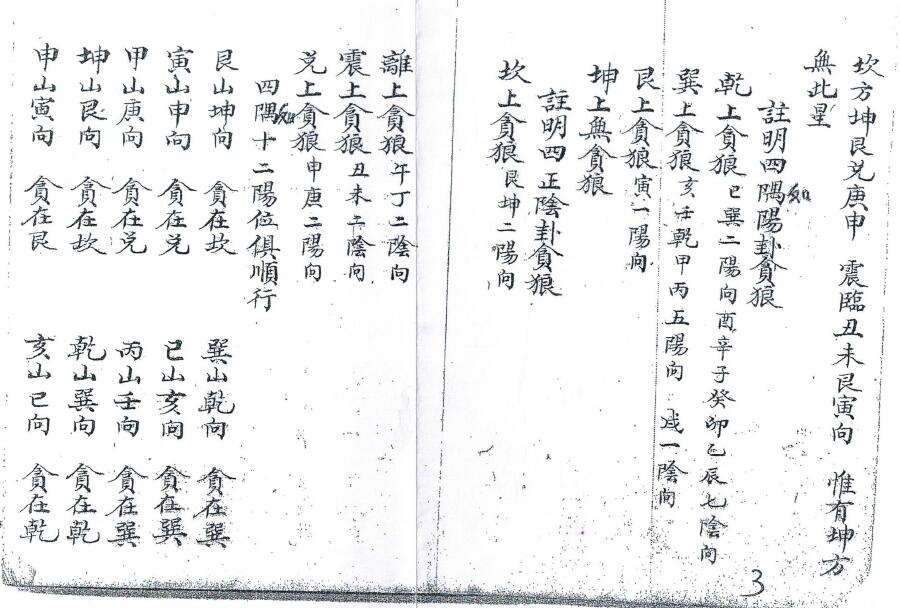 坎方坤艮兑庚申　震臨丑未艮寅向　惟有坤方
無此星
註明四隅陽卦貪狼
乾上貪狼巳巽二陽向酉辛子癸卯乙辰七陰向
巽上貪狼亥壬乾甲丙五陽向戌一陰向
艮上貪狼寅一陽向
坤上無貪狼
註明四正陰卦貪狼
坎上貪狼艮坤二陽向
離上貪狼午丁二陰向
震上貪狼丑未二陰向
兑上貪狼申庚二陽向
四隅十二陽位俱順行
艮山坤向　貪在坎　巽山乾向　貪在巽
寅山申向　貪在兑　巳山亥向　貪在巽
甲山庚向　貪在兑　丙山壬向　貪在巽
坤山艮向　貪在坎　乾山巽向　貪在乾
申山寅向　貪在艮　亥山巳向　貪在乾
3